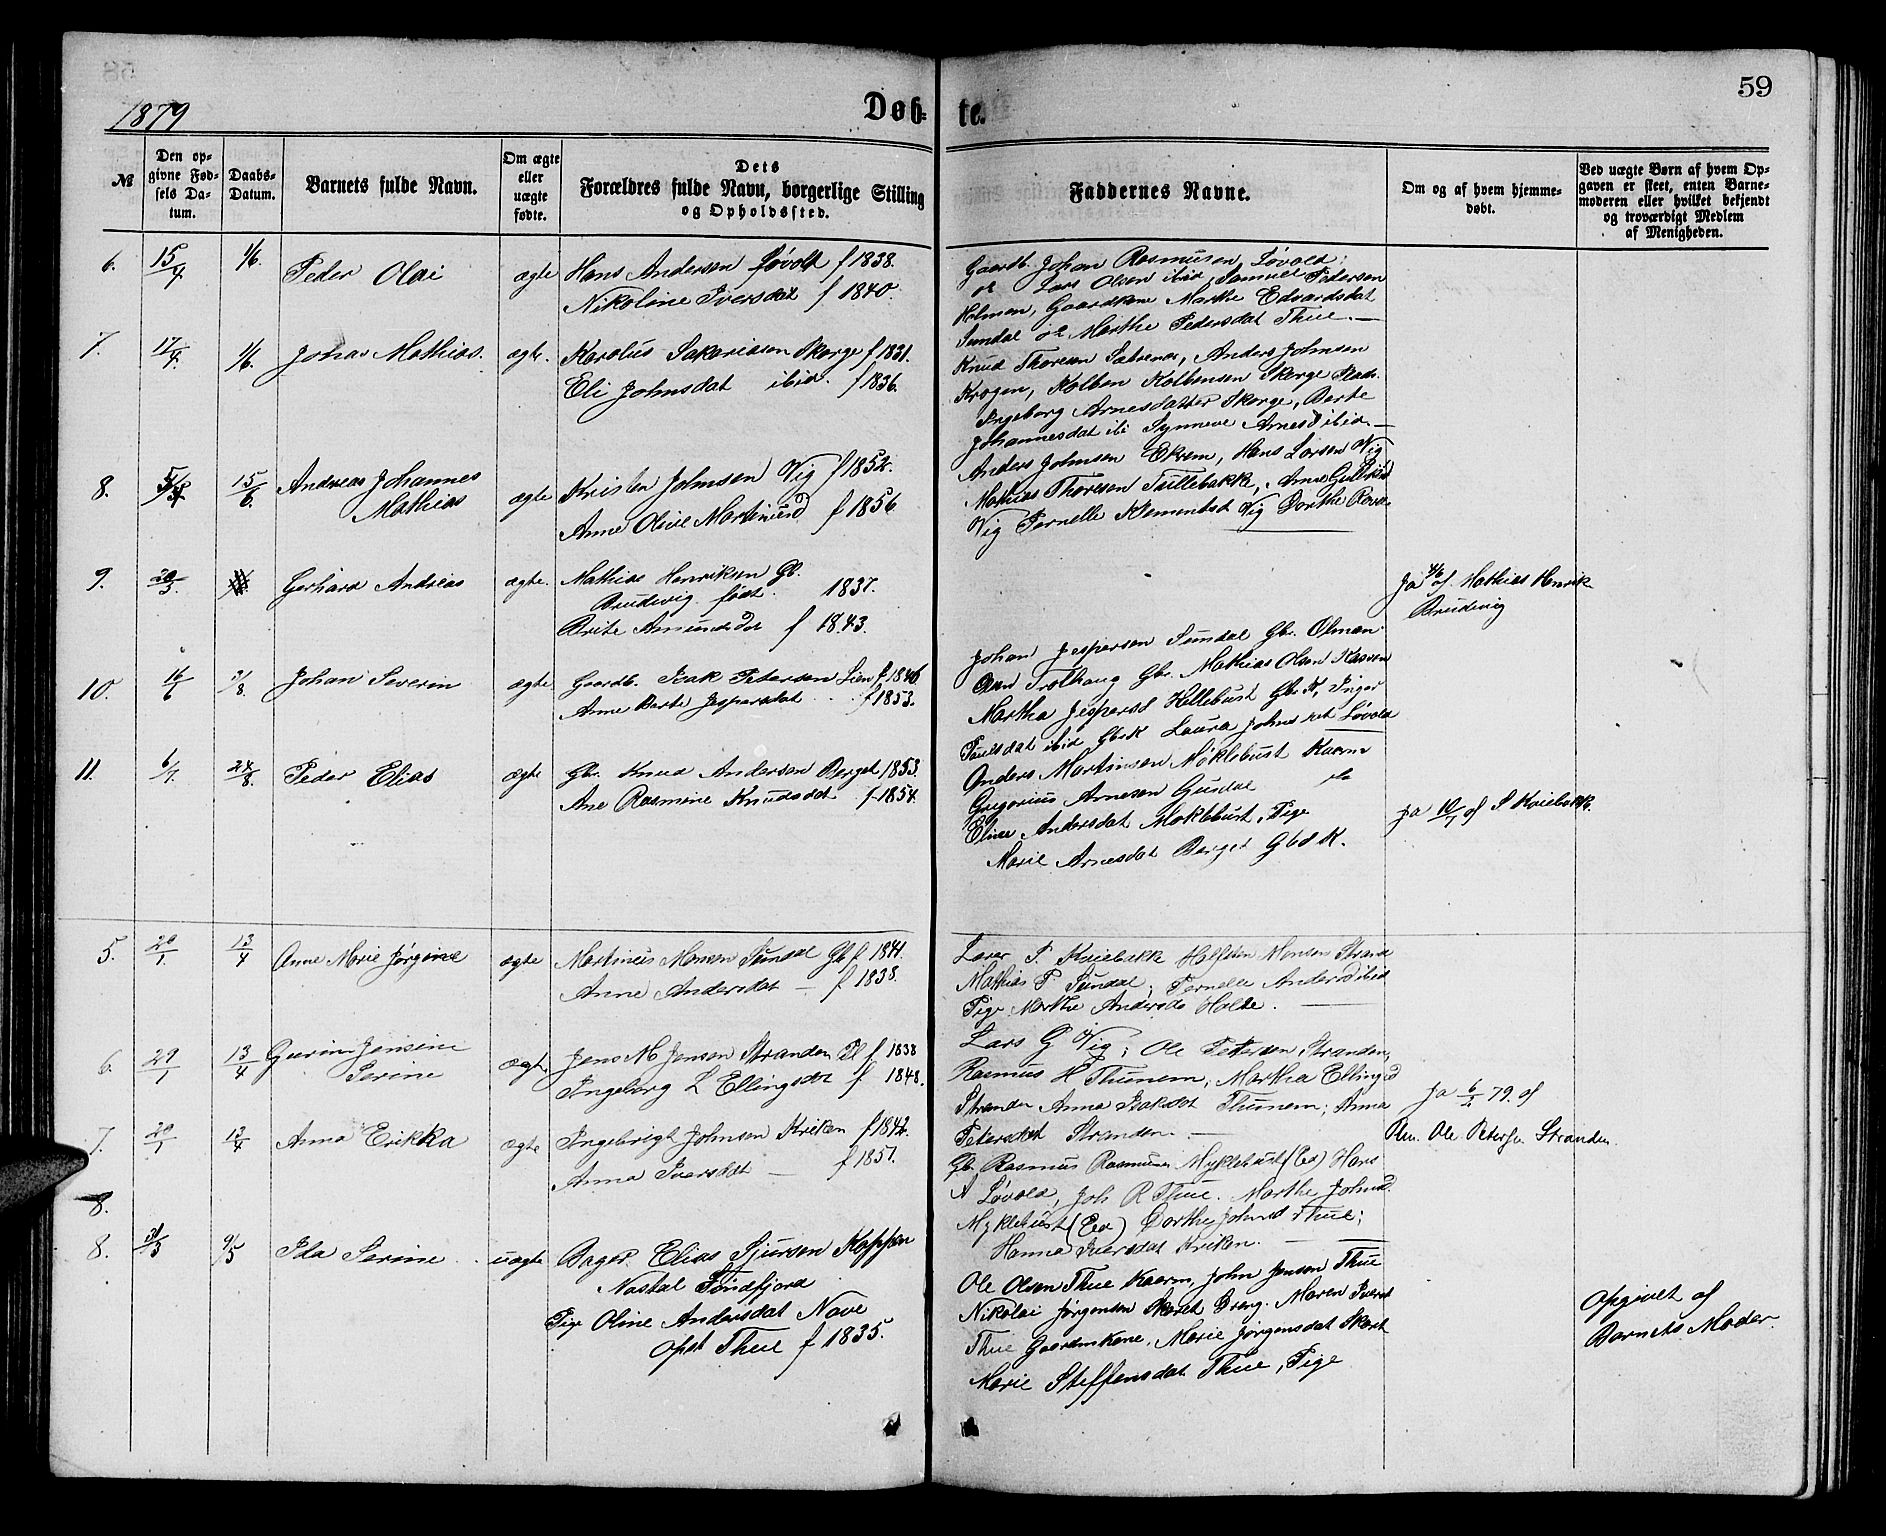 59
1879
Døb- te.
№
Den op-
givne Fød-
sels Da-
tum.
Daabs-
Datum.
Barnets fulde Navn.
Om ægte
eller
uægte
fødte.
Dets
Forældres fulde Navn, borgerlige Stilling
og Opholdssted.
Faddernes Navne.
Om og af hvem hjemme-
døbt.
Ved uægte Børn af hvem Op-
gaven er skeet, enten Barne-
moderen eller hvilket bekjendt
og troværdigt Medlem
af Menigheden.
6. 15/4 1/6. Peder Olai ægte Hans Andersen Løvold f 1838.
Nikoline Iversdat f 1840.
Gaardb. Johan Rasmusen Løvold;
Lars Olsen ibid, Samuel Pedersen
Holmen, Gaardkone Marthe Edvardsdat
Sundal og Marthe Pedersdat Thue.
7. 17/4. 1/6. Jonas Mathias. ægte. Karolus Sakariasen Skorge f 1831.
Eli Johnsdat ibid. f 1836.
Knud Thoresen Sætrenes, Anders Johnsen
Krogen, Kolben Kolbensen Skorge Plads.
Ingeborg Arnesdatter Skorge, Berte
Johannesdat ibi Synneve Arnesd ibid
8. 15/6. Andreas Johannes
Mathias
ægte Kristen Johnsen Vig f 1852.
Anne Olive Martinusd f 1856
Anders Johnsen Ekrem, Hans Larsen Vig
Mathias Thoresen Tuillebakk, Anne
Vig Pernelle Klementsd Vig Dorthe
9. 20/5. Gerhard Andreas ægte. Mathias Henriksen Gb.
Brudevig født 1837.
Brite Amundsdat f 1843.
Ja af. Mathias Henrik
Brudevig
10. 16/6 3/8. Johan Severin ægte Gaardb. Isak Petersen Lien f 1846
Anne Berte Jespersdat f 1853.
Johan Jespersen Sundal Gbr. Olman
Olsen Trolhaug Gbr. Mathias Olsen
Martha Jespersd Hellebust Gbr. K, Inger
Poulsdat ibid GbrK Laura Johnsdat Løvold
11. 6/7. 24/8. Peder Elias ægte Gbr. Knud Andersen Berget 1853.
Ane Rasmine Knudsdat f 1854.
Anders Martinsen Møklebust Kaarm
Gregorius Arnesen Gusdal do
Eline Andersdat Møklebust, Pige
Marie Arnesdat Berget Gbd K.
Ja 10/7 af S Kviebakk.
5. 20/1. 13/4 Anne Marie Jørgine ægte Martinus Monsen Sundal Gb f 1841.
Anne Andersdat — f 1838.
Lærer S. Kviebakk Halfdan Monsen Strand
Mathias P Sundal; Pernelle Andersd ibid
Pige. Marthe Andersda Holte.
6. 29/1 13/4 Gurine Jensine
Serine
ægte. Jens M Jensen Stranden Pl f 1838
Ingeborg L Ellingsdat f 1848.
Lars G Vig; Ole Petersen Stranden,
Rasmus H Thunem, Martha Ellingsd
Stranden Anna Isaksdat Thunem; Anna
Petersdat Stranden.
Ja 6/2 79. af
Um. Ole Peters. Stranden
7. 20/1 13/4 Anna Erikka ægte Ingebrigt Johnsen Kriken f 1842.
Anna Iversdat — f 1851.
Gb. Rasmus Rasmusen Myklebust (Eid) Hans
A Løvold, Joh R Thue. Marthe Johnsd.
Myklebust (Eid) Dorthe Johnsd Thue;
Hanna Iversdat Kriken.
8.
8. 31/3 9/5 Ida Serine uægte Bager Elias Sjursen Koppen
Nastal Søndfjord
Pige Oline Andersdat Nave
opst Thue f 1835.
Ole Olsen Thue Kaarm, John Jensen Thue
Nikolai Jørgensen Skaret Dreng. Maren Iversd
Thue Gaardmkone, Marie Jørgensdat Skart
Marie Steffensdat Thue, Pige
Opgivet af
Barnets Moder.